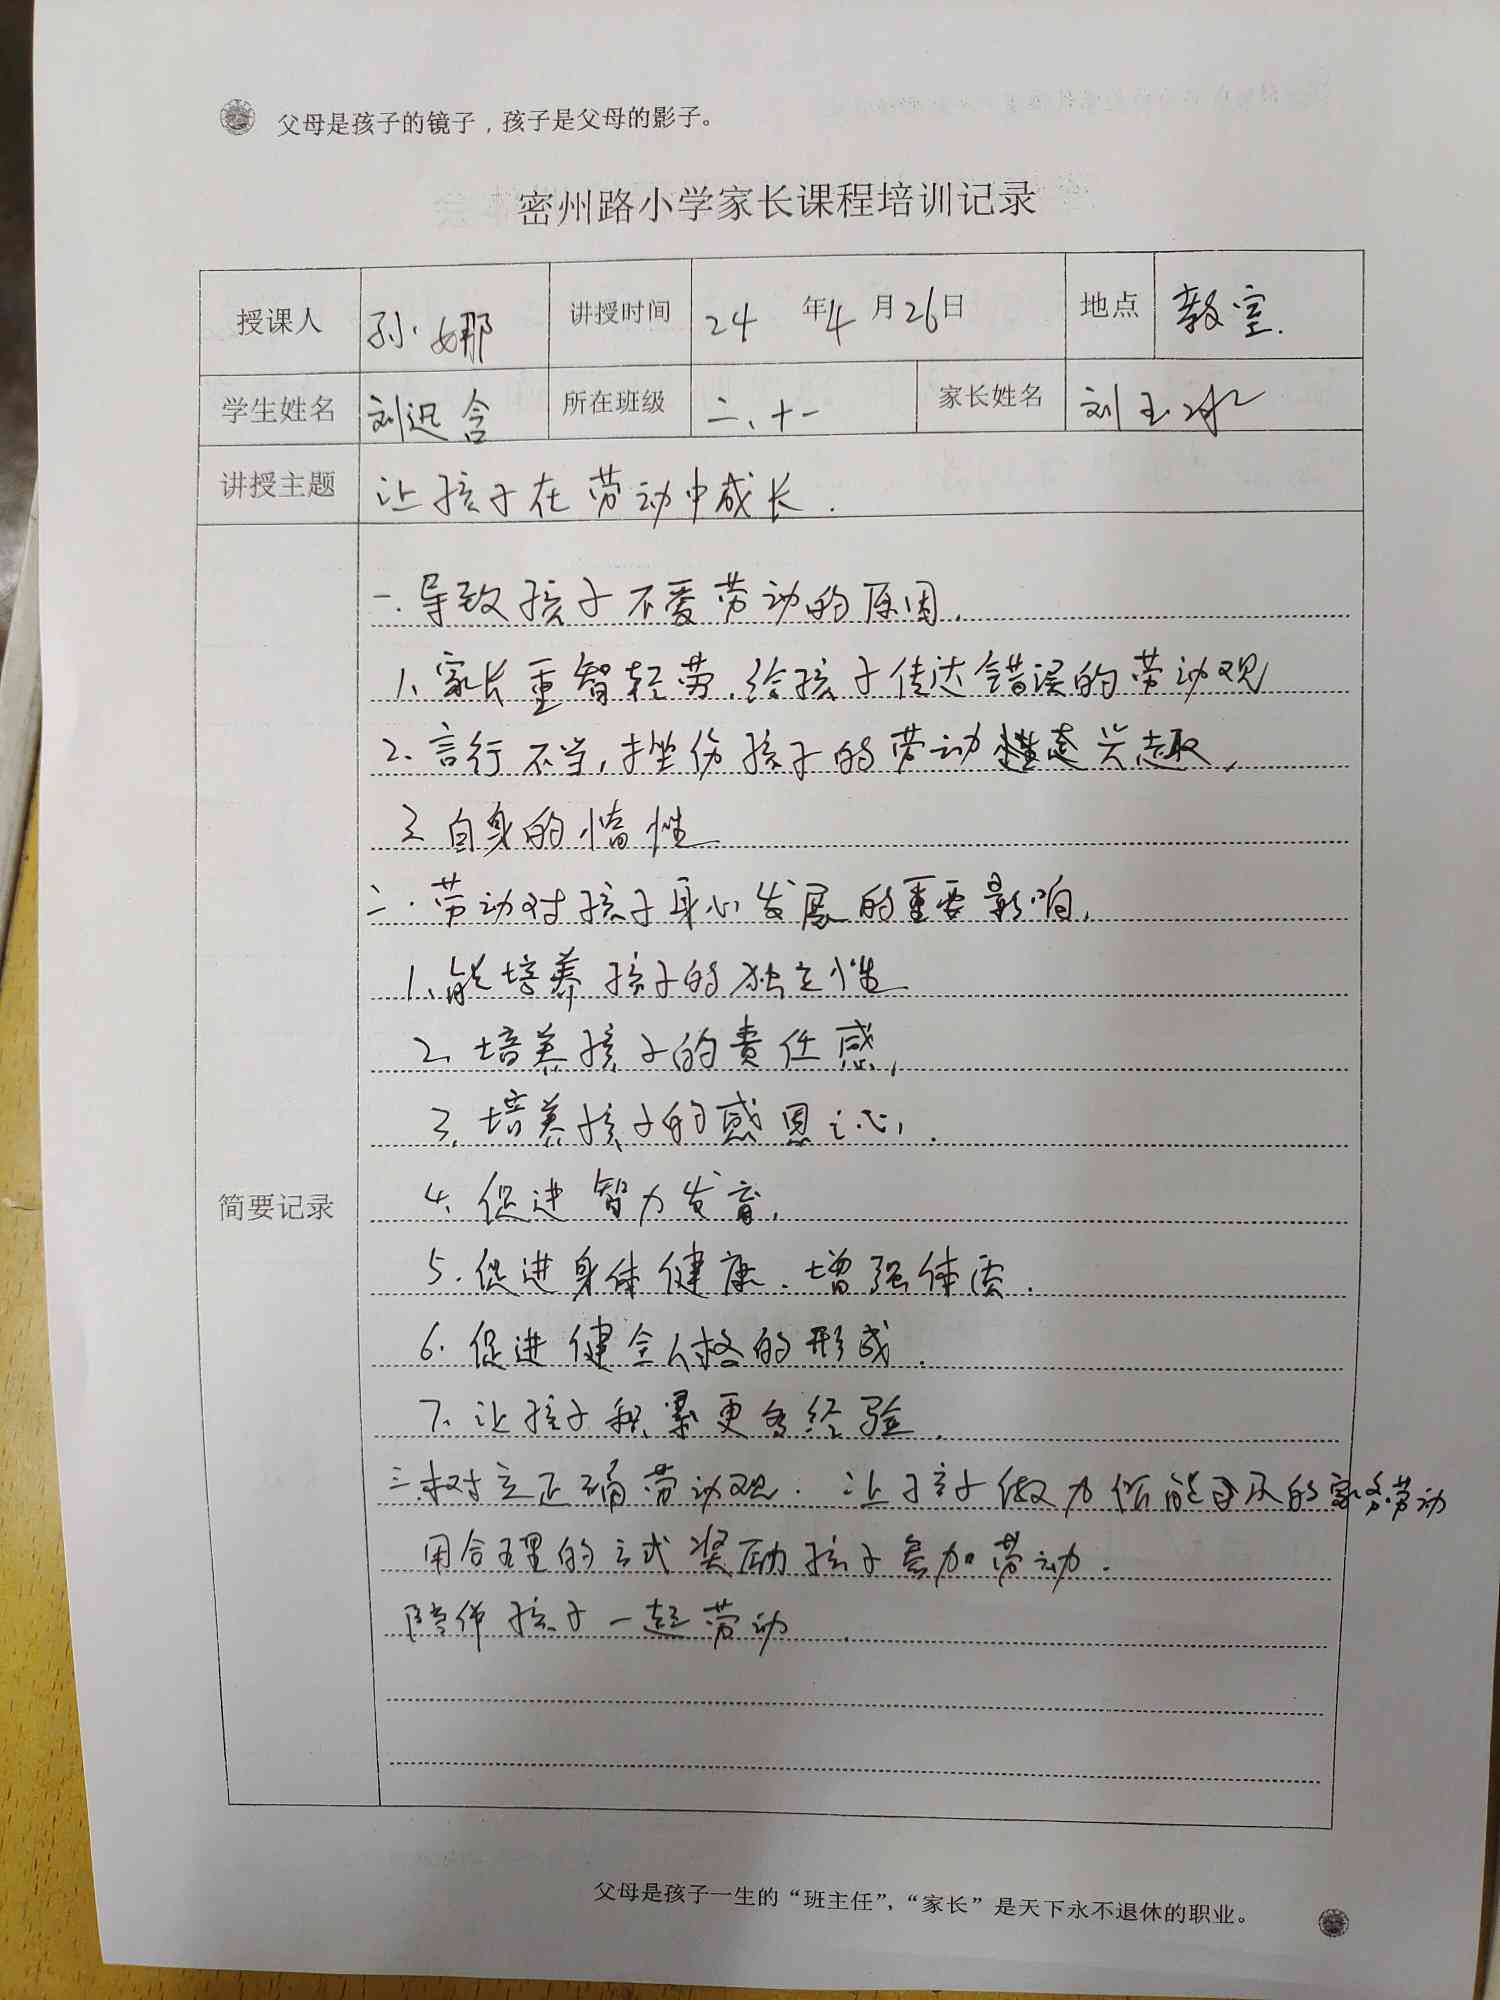 父母是孩子的镜子，孩子是父母的影子。
密州路小学家长课程培训记录
授课人 孙娜 讲授时间 24年4月26日 地点 教室.
学生姓名 刘迅含 所在班级 二、十一 家长姓名 刘玉冰
讲授主题 让孩子在劳动中成长.
简要记录
一.导致孩子不爱劳动的原因.
1、家长重智轻劳.给孩子传达错误的劳动观
2.言行不当,挫伤孩子的劳动兴趣,
3.自身的惰性
二.劳动对孩子身心发展的重要影响.
1、能培养孩子的独立性
2、培养孩子的责任感,
3.培养孩子的感恩之心.
4、促进智力发育,
5.促进身体健康.增强体质.
6.促进健全人格的形成.
7、让孩子积累更多经验.
三.树立正确劳动观.让孩子做力所能及的家务劳动
用合理的方式奖励孩子参加劳动.
陪伴孩子一起劳动.
父母是孩子一生的“班主任”，“家长”是天下永不退休的职业。